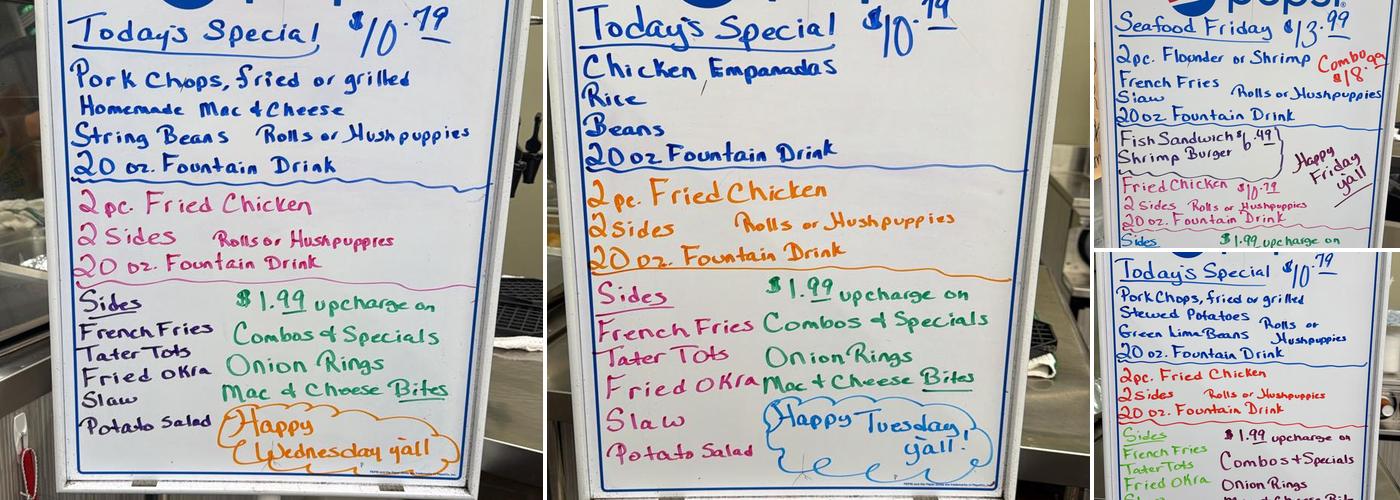 Today's Special $10.79
Pork Chops, fried or grilled
Homemade Mac & Cheese
String Beans Rolls or Hushpuppies
20 oz. Fountain Drink
2 pc. Fried Chicken
2 Sides Rolls or Hushpuppies
20 oz. Fountain Drink
Sides $1.99 upcharge on
French Fries Combos & Specials
Tater Tots Onion Rings
Fried OKra Mac & Cheese Bites
Slaw
Potato Salad
Happy
Wednesday y'all
Today's Special $10.79
Chicken Empanadas
Rice
Beans
20 oz Fountain Drink
2 pc. Fried Chicken
2 sides Rolls or Hushpuppies
20 oz. Fountain Drink
Sides $1.99 upcharge on
French Fries Combos & Specials
Tater Tots Onion Rings
Fried OKra Mac + Cheese Bites
Slaw
Potato Salad
Happy Tuesday
y'all!
pepsi
Seafood Friday $13.99
2 pc. Flounder or Shrimp Combo
$18.
French Fries
Slaw Rolls or Hushpuppies
20 oz. Fountain Drink
Fish Sandwich $6.49
Shrimp Burger
Happy
Friday
y'all
Fried Chicken $10.79
2 Sides Rolls or Hushpuppies
20 oz. Fountain Drink
Sides $1.99 upcharge on
Today's Special $10.79
Pork Chops, fried or grilled
Stewed Potatoes
Green Lima Beans Rolls or
Hushpuppies
20 oz. Fountain Drink
2 pc. Fried Chicken
2 sides Rolls or Hushpuppies
20 oz. Fountain Drink
Sides $1.99 upcharge on
French Fries Combos + Specials
Tater Tots
Fried OKra Onion Rings